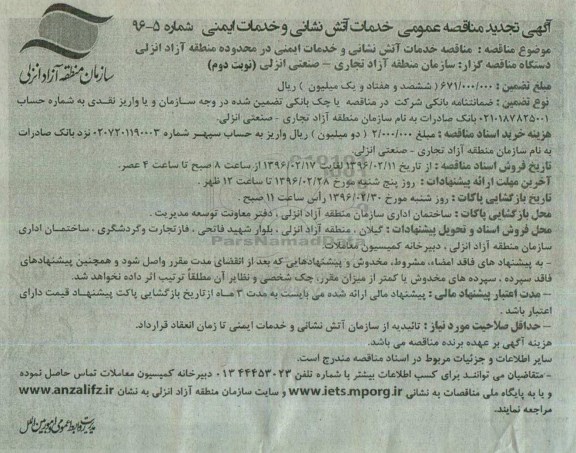 آگهی تجدید مناقصه عمومی خدمات آتش نشانی و خدمات ایمنی شماره ۵-۹۶
سازمان منطقه آزاد انزلی
موضوع مناقصه : مناقصه خدمات آتش نشانی و خدمات ایمنی در محدوده منطقه آزاد انزلی
دستگاه مناقصه گزار: سازمان منطقه آزاد تجاری – صنعتی انزلی (نوبت دوم)
مبلغ تضمین : ۶۷۱/۰۰۰/۰۰۰ ( ششصد و هفتاد و یک میلیون ) ریال
نوع تضمین : ضمانتنامه بانکی شرکت در مناقصه یا چک بانکی تضمین شده در وجه سازمان و یا واریز نقدی به شماره حساب
۰۲۱۰۱۸۷۸۲۵۰۰۱ بانک صادرات به نام سازمان منطقه آزاد تجاری - صنعتی انزلی.
هزینه خرید اسناد مناقصه : مبلغ ۲/۰۰۰/۰۰۰ ( دو میلیون ) ریال واریز به حساب سپهر شماره ۰۲۰۷۲۰۱۱۹۰۰۰۳ نزد بانک صادرات
به نام سازمان منطقه آزاد تجاری - صنعتی انزلی
تاریخ فروش اسناد مناقصه : از تاریخ ۱۳۹۶/۰۲/۱۱ لغایت ۱۳۹۶/۰۲/۱۷ از ساعت ۸ صبح تا ساعت ۴ عصر.
آخرین مهلت ارائه پیشنهادات : روز پنج شنبه مورخ ۱۳۹۶/۰۲/۲۸ تا ساعت ۱۲ ظهر .
تاریخ بازگشایی پاکات : روز شنبه مورخ ۱۳۹۶/۰۲/۳۰ رأس ساعت ۱۱ صبح .
محل بازگشایی پاکات : ساختمان اداری سازمان منطقه آزاد انزلی ، دفتر معاونت توسعه مدیریت .
محل فروش اسناد و تحویل پیشنهادات : گیلان ، منطقه آزاد انزلی ، بلوار شهید فاتحی ، فاز تجارت و گردشگری ، ساختمان اداری
سازمان منطقه آزاد انزلی ، دبیرخانه کمیسیون معاملات
- به پیشنهاد های فاقد امضاء، مشروط، مخدوش و پیشنهادهایی که بعد از انقضای مدت مقرر واصل شود و همچنین پیشنهادهای
فاقد سپرده ، سپرده های مخدوش یا کمتر از میزان مقرر، چک شخصی و نظایر آن مطلقاً ترتیب اثر داده نخواهد شد.
– مدت اعتبار پیشنهاد مالی : پیشنهاد مالی ارائه شده می بایست به مدت ۳ ماه از تاریخ بازگشایی پاکت پیشنهاد قیمت دارای
اعتبار باشد .
– حداقل صلاحیت مورد نیاز : تائیدیه از سازمان آتش نشانی و خدمات ایمنی تا زمان انعقاد قرارداد.
هزینه آگهی بر عهده برنده مناقصه می باشد.
سایر اطلاعات و جزئیات مربوط در اسناد مناقصه مندرج است.
–متقاضیان می توانند برای کسب اطلاعات بیشتر با شماره تلفن ۴۴۴۵۳۰۲۳ ۰۱۳ دبیرخانه کمیسیون معاملات تماس حاصل نموده
و یا به پایگاه ملی مناقصات به نشانی www.iets.mporg.ir و سایت سازمان منطقه آزاد انزلی به نشان www.anzalifz.ir
مراجعه نمایند.
مدیریت روابط عمومی و امور بین الملل
ParsNamadData